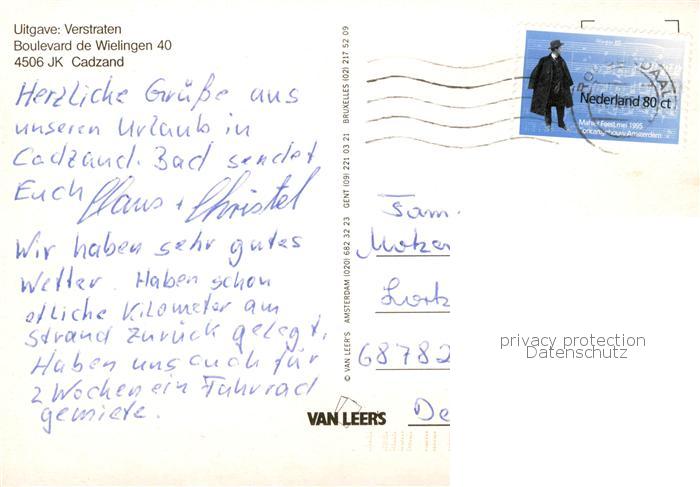 Uitgave: Verstraten
Boulevard de Wielingen 40
4506 JK Cadzand
Herzliche Grüße aus
unseren Urlaub in
Cadzand. Bad sendet
Euch Claus + Christel
Wir haben sehr gutes
Wetter. Haben schon
etliche Kilometer am
Strand zurück gelegt.
Haben uns auch für
2 Wochen ein Fahrrad
gemiete.
© VAN LEER'S AMSTERDAM (020) 682 32 23 GENT (09) 221 03 21 BRUXELLES (02) 217 52 09
VAN LEER'S
Nederland 80 ct
Mahler Feest mei 1995
Concertgebouw Amsterdam
Fam.
68782
De
privacy protection
Datenschutz